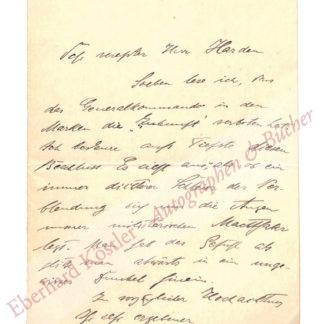 Sehr verehrter Herr Harden
Soeben lese ich, dass
das Generalkommando in den
Marken die "Zukunft" verboten hat.
Ich bedaure aufs Tiefste diesen
Beschluss. Es ist als ob ein
immer dichterer Schleier der Ver-
blendung sich um die Augen
immer
legt. Man hat das Gefühl als
man abwärts in ein unge-
Dunkel hinein.
In vorzüglicher Hochachtung
Ihr sehr ergebener
Eberhard Köstler Autographen & Bücher